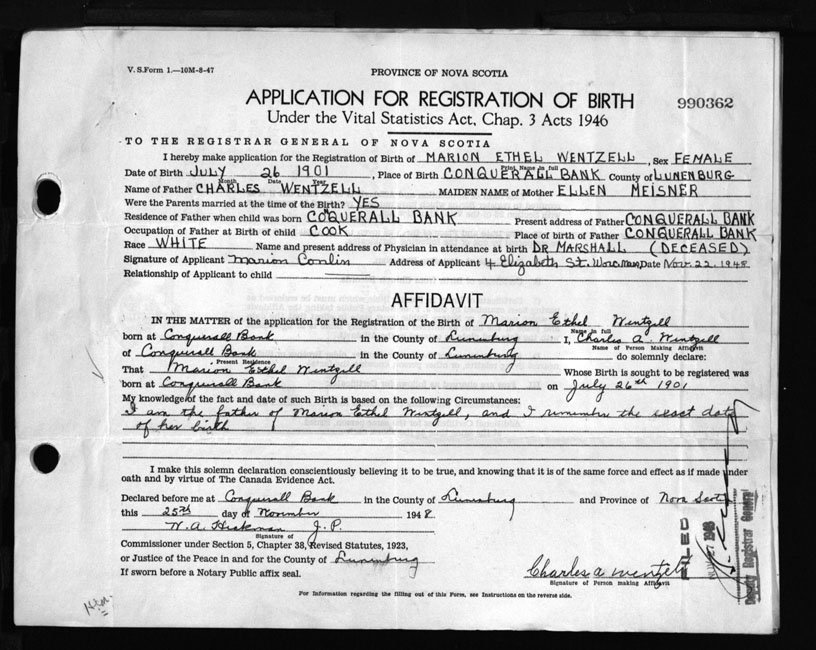 V. S. Form 1.—10M-8-47
PROVINCE OF NOVA SCOTIA
APPLICATION FOR REGISTRATION OF BIRTH
990362
Under the Vital Statistics Act, Chap. 3 Acts 1946
TO THE REGISTRAR GENERAL OF NOVA SCOTIA
I hereby make application for the Registration of Birth of MARION ETHEL WENTZELL, Sex FEMALE
Print Name in full
Date of Birth JULY 26 1901, Place of Birth CONQUERALL BANK County of LUNENBURG
Month Date Year
Name of Father CHARLES WENTZELL MAIDEN NAME of Mother ELLEN MEISNER
Were the Parents married at the time of the Birth? YES
Residence of Father when child was born COQUERALL BANK Present address of Father CONQUERALL BANK
Occupation of Father at Birth of child COOK Place of birth of Father CONQUERALL BANK
Race WHITE Name and present address of Physician in attendance at birth DR MARSHALL (DECEASED)
Signature of Applicant Marion Conlin Address of Applicant 4 Elizabeth St. Worc Mass Date Nov. 22, 1948
Relationship of Applicant to child
AFFIDAVIT
IN THE MATTER of the application for the Registration of the Birth of Marion Ethel Wentzell
Name in full
born at Conquerall Bank in the County of Lunenburg I, Charles A. Wentzell
Name of Person Making Affidavit
of Conquerall Bank in the County of Lunenburg do solemnly declare:
Present Residence
That Marion Ethel Wentzell Whose Birth is sought to be registered was
born at Conquerall Bank on July 26th 1901
My knowledge of the fact and date of such Birth is based on the following Circumstances:
I am the father of Marion Ethel Wentzell, and I remember the exact date
of her birth
I make this solemn declaration conscientiously believing it to be true, and knowing that it is of the same force and effect as if made under
oath and by virtue of The Canada Evidence Act.
Declared before me at Conquerall Bank in the County of Lunenburg and Province of Nova Scotia
this 25th day of November 1948
W. A. Hickman J. P.
Signature of
Commissioner under Section 5, Chapter 38, Revised Statutes, 1923,
or Justice of the Peace in and for the County of Lunenburg
If sworn before a Notary Public affix seal.
Charles A Wentzell
Signature of Person making Affidavit
For Information regarding the filling out of this Form, see Instructions on the reverse side.
FILED
1948
Deputy Registrar General